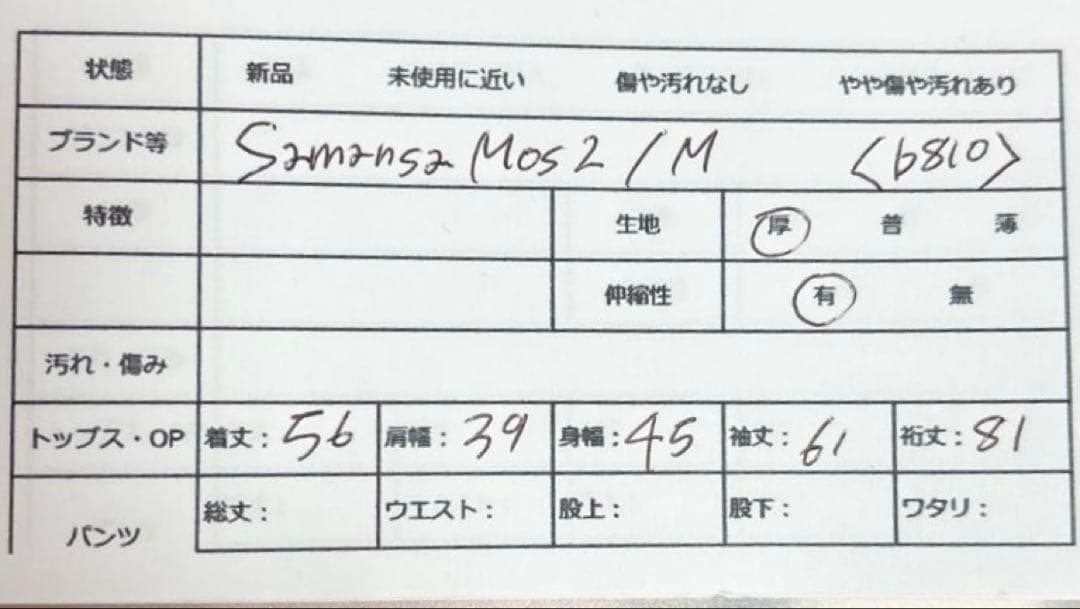 状態 新品 未使用に近い 傷や汚れなし やや傷や汚れあり
ブランド等 Samansa Mos2 / M <b810>
特徴 生地 厚 普 薄
伸縮性 有 無
汚れ・傷み
トップス・OP 着丈：56 肩幅：39 身幅：45 袖丈：61 裄丈：81
パンツ 総丈： ウエスト： 股上： 股下： ワタリ：